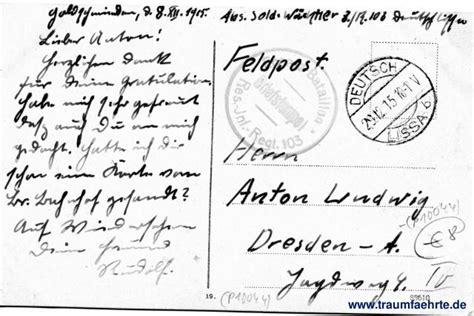 Goldschmieden, d. 8. XII. 1915.
Lieber Anton!
Herzlichen Dank
für deine Gratulation
habe mich sehr gefreut
daß auch du an mich
gedacht. Hatte ich dir
schon eine Karte vom
Br. Bahnhof gesandt?
Auf Wiedersehen
Dein Freund
Rudolf.
Abs. Sold. 103 Deutsch Lissa
Feldpost.
Bataillon
Briefstempel
Res.-Inf.-Regt. 103
DEUTSCH
12.15
LISSA b
Herrn
Anton Ludwig
(P10044)
Dresden-A.
€8
Jagdweg IV
19.
(P10044)
www.traumfaehrte.de